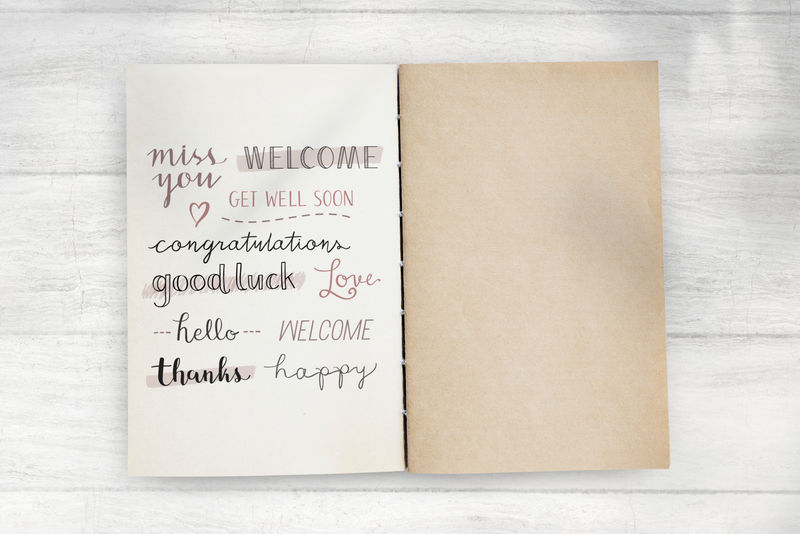 miss
you
WELCOME
GET WELL SOON
congratulations
good luck
Love
hello
WELCOME
thanks
happy